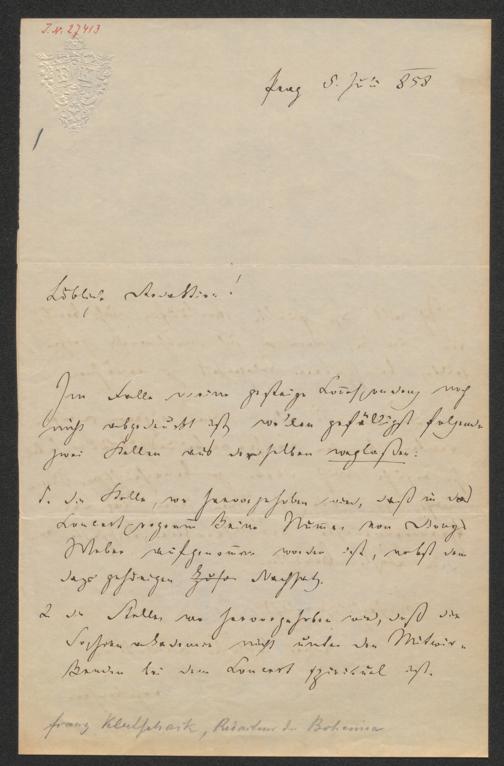 J.N. 27413
Prag 8. Juli 858
1
Löbliche Redaktion!
Im Falle meine gestrige Correspondenz noch
nicht abgedruckt ist, wollen gefälligst folgende
zwei Stellen aus derselben weglassen:
1. die Stelle, wo hervorgehoben wird, daß in das
Concertprogramm keine Nummer von Dionys
Weber aufgenommen worden ist, nebst dem
dazu gehörigen Nachsatz.
2 die Stelle, wo hervorgehoben wird, daß die
Sophienakademie nicht unter den Mitwir-
kenden bei dem Concert spirituel ist.
Franz Klutschack, Redakteur der Bohemia